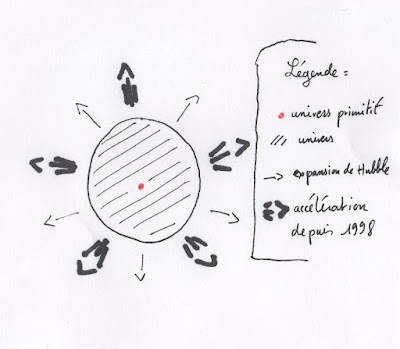 Légende :
univers primitif
univers
expansion de Hubble
accélération
depuis 1998